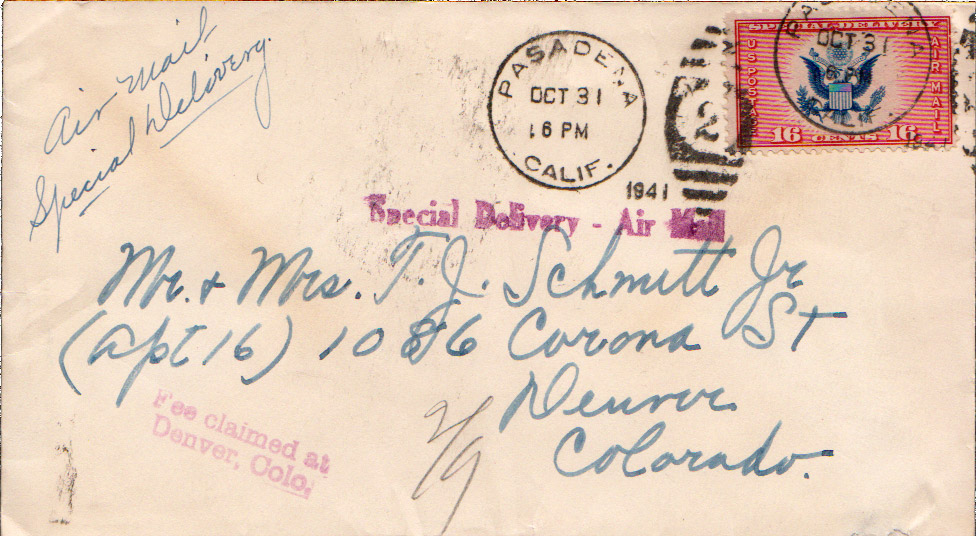 Air Mail
Special Delivery.
PASADENA
OCT 31
6 PM
CALIF.
1941
2
SPECIAL DELIVERY
U S POSTAGE
AIR MAIL
16 CENTS 16
OCT 31
Special Delivery - Air Mail
Mr. & Mrs. T. J. Schmitt Jr
(apt 16) 1086 Corona St
Denver
Colorado.
Fee claimed at
Denver, Colo.